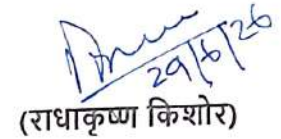 29/6/26
(राधाकृष्ण किशोर)